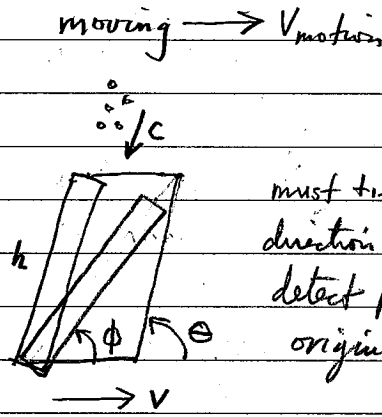 moving → V motion
c
must
direction
h
detect
ϕ θ origin
→ V